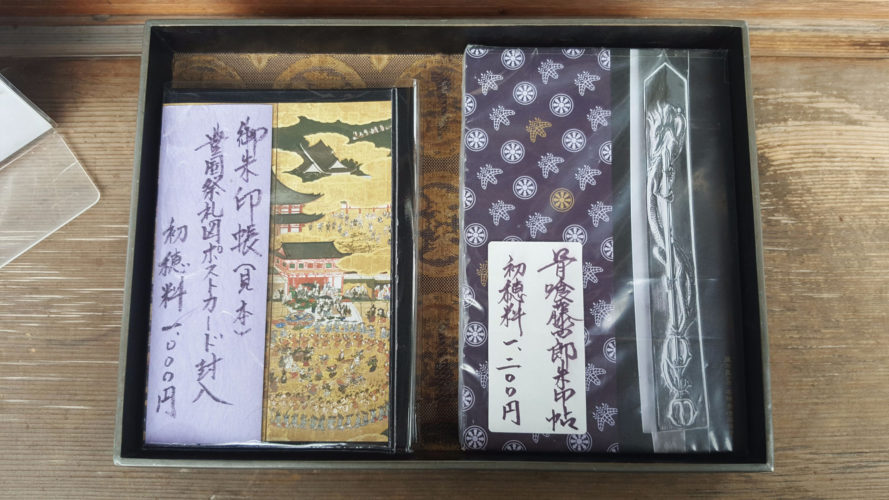 御朱印帳(見本)
豊国祭礼図ポストカード封入
初穂料 一、〇〇〇円
骨喰藤四郎朱印帖
初穂料 一、二〇〇円